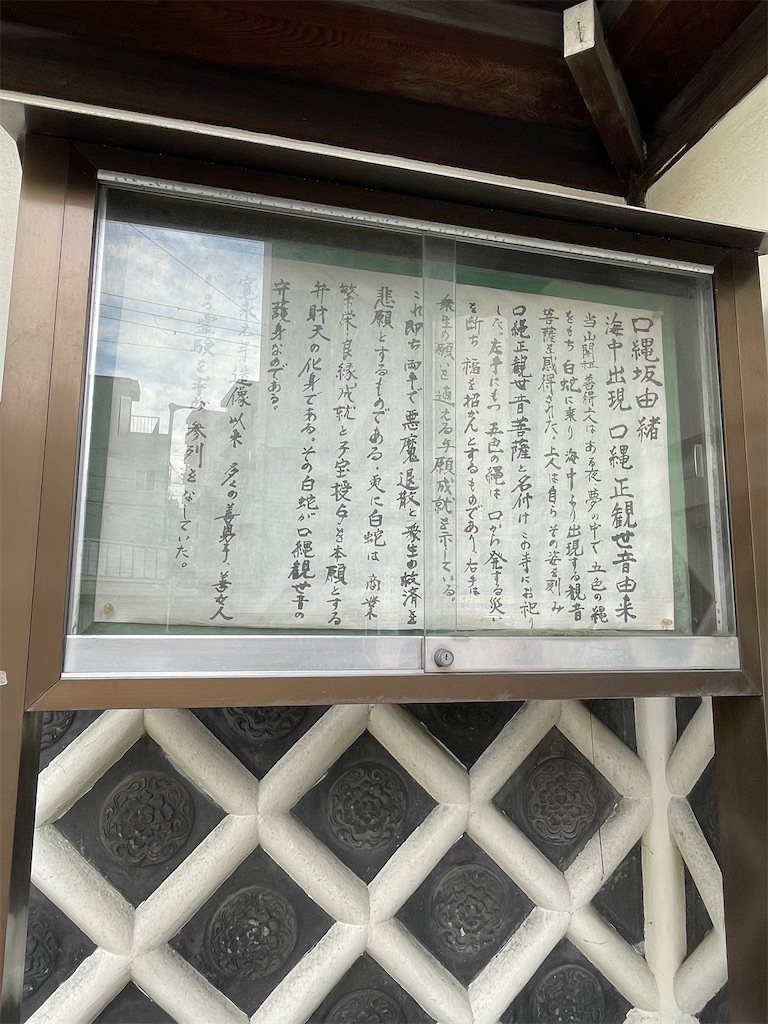 口縄坂由緒
海中出現 口縄 正観世音由来
当山開祖 善得上人はある夜 夢の中で 五色の縄
をもち 白蛇に乗り 海中より出現する観音
菩薩を感得された。上人は自ら その姿を刻み
口縄正観世音菩薩と名付け この寺にお祀り
した。左手にもつ 五色の縄は 口から発する災い
を断ち 福を招かんとするものであり、右手は
衆生の願いを適える与願成就を示している。
これ即ち 両手で 悪魔退散と 衆生の救済を
悲願とするものである。更に白蛇は 商業
繁栄 良縁成就と子宝授与を本願とする
弁財天の化身である。その白蛇が口縄観世音の
守護身なのである。
寛永 年 造像 以来 多くの善男子、善女人
がこの霊験を求め 参列をなしていた。